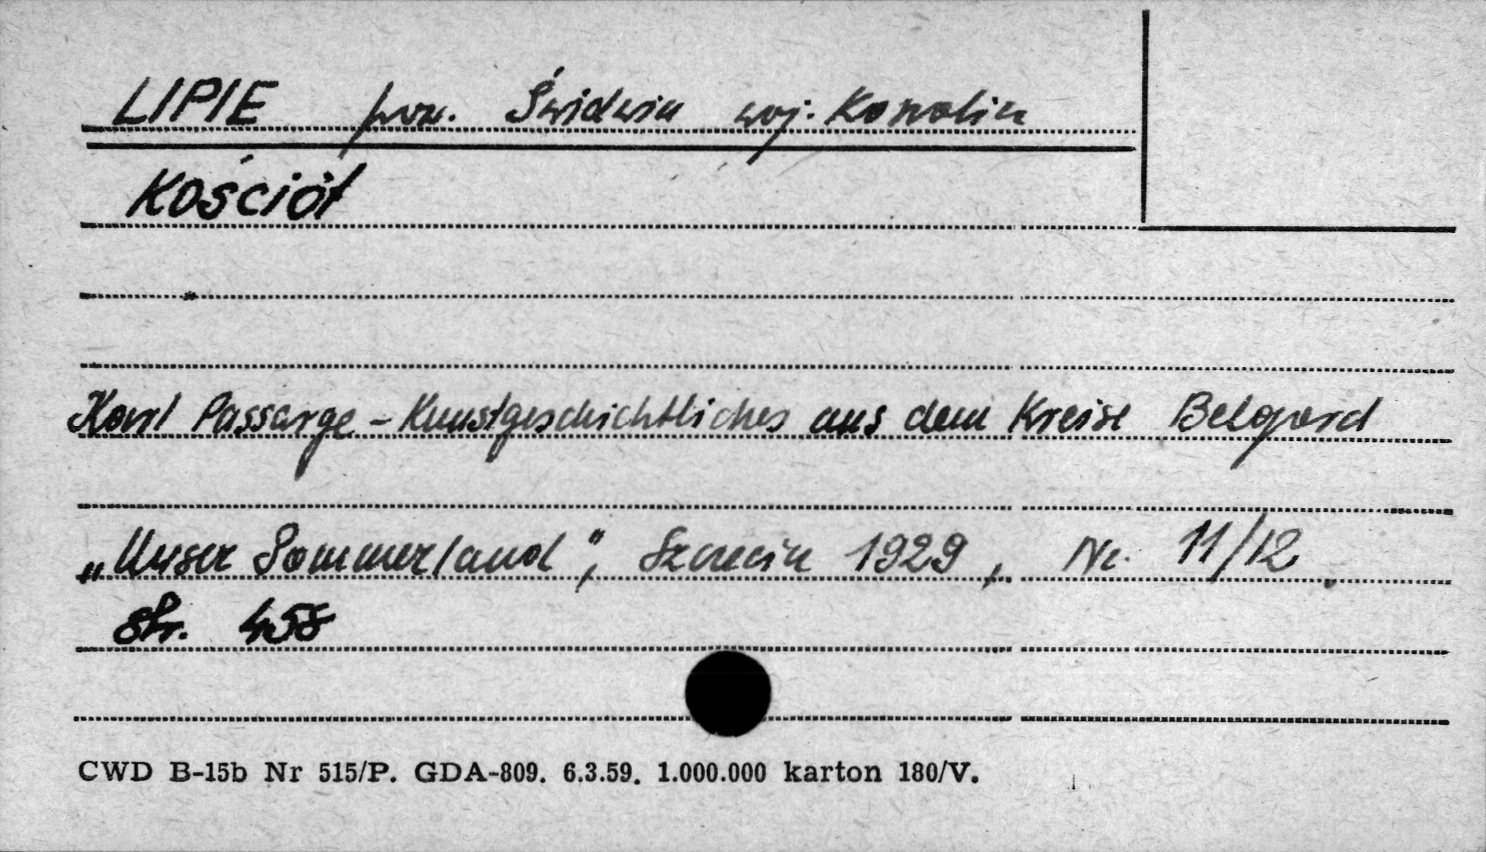 LIPIE pow. Świdwin woj. Koszalin
KOŚCIÓŁ
Karl Passarge - Kunstgeschichtliches aus dem Kreise Belgard
„Unser Pommerland”, Szczecin 1929, Nr. 11/12.
str. 458
CWD B-15b Nr 515/P. GDA-809. 6.3.59. 1.000.000 karton 180/V.